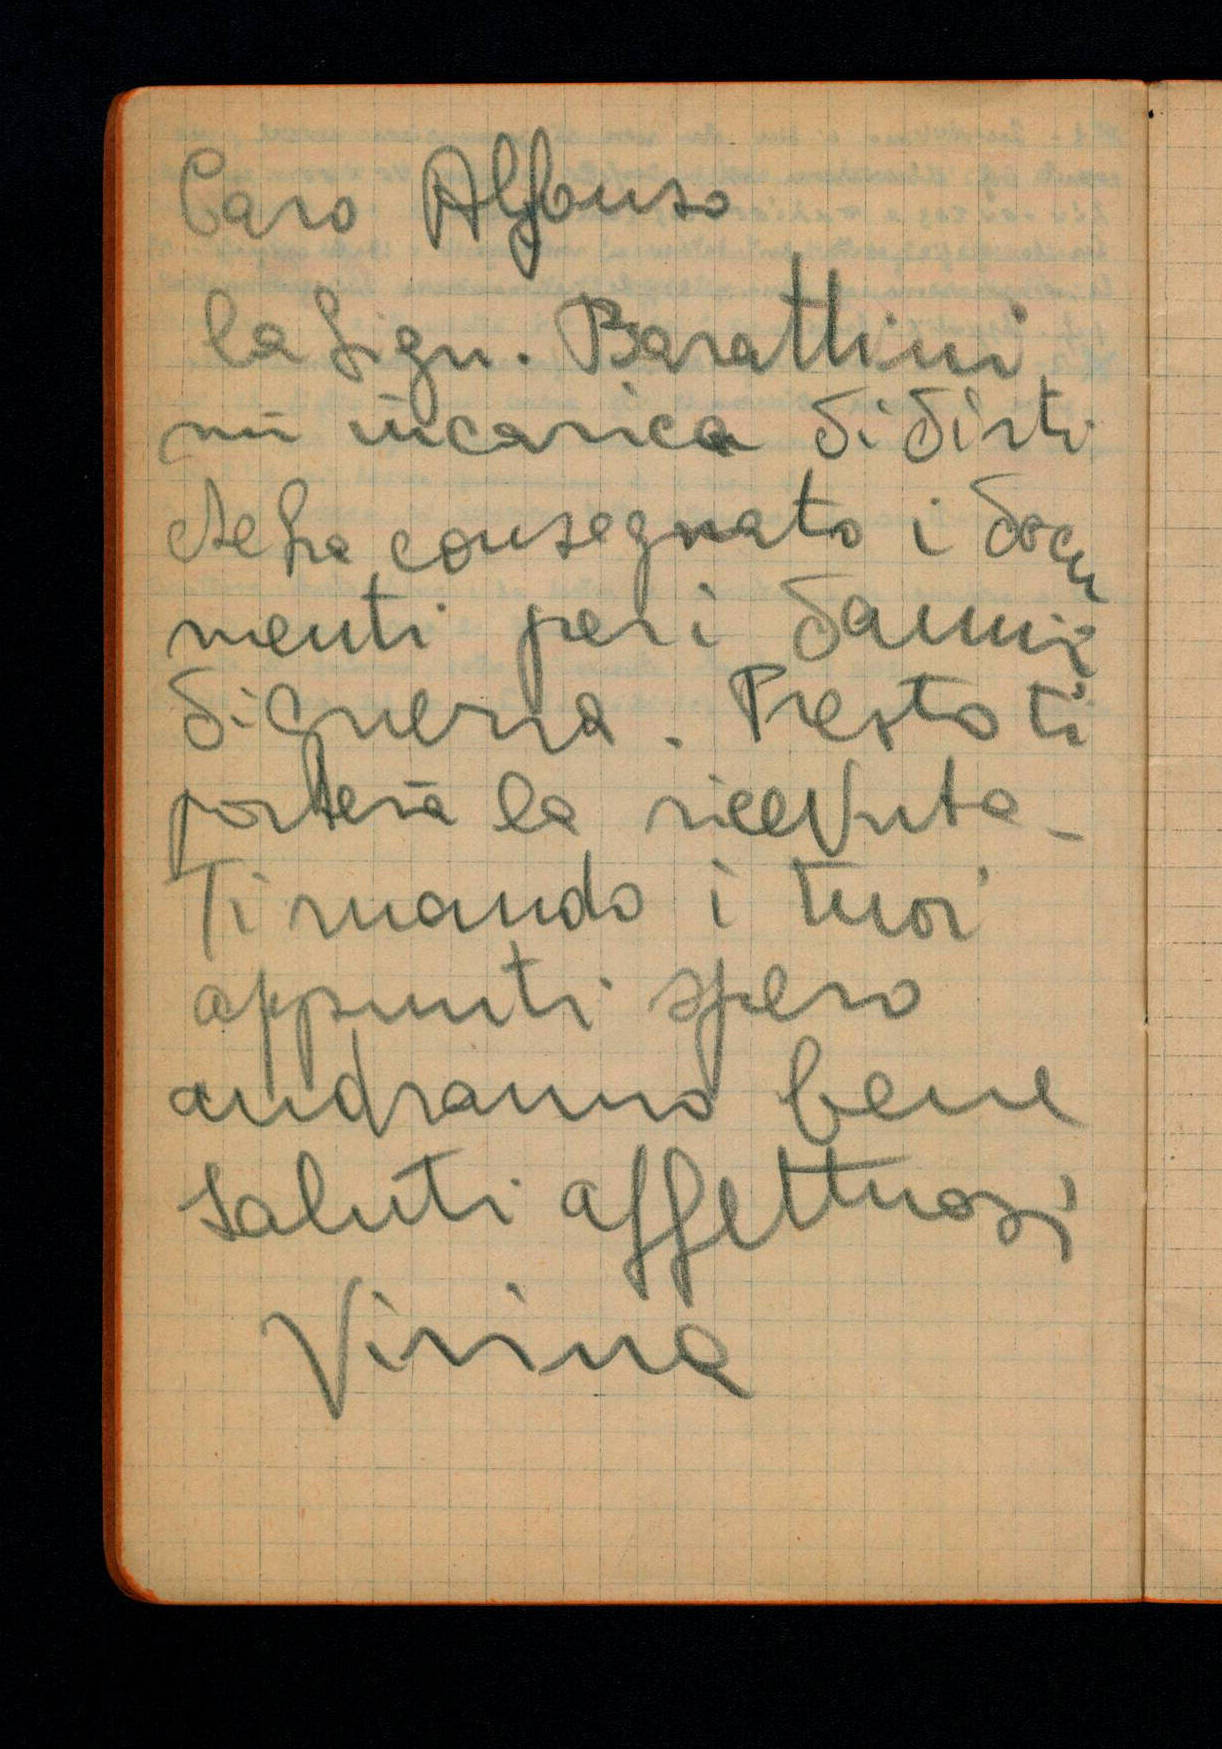 Caro Alfonso
la Sign. Barattini
mi incarica di dirti
che ha consegnato i docu
menti per i danni
di guerra. Presto ti
porterà la ricevuta -
Ti mando i tuoi
appunti spero
andranno bene
saluti affettuosi
Virina